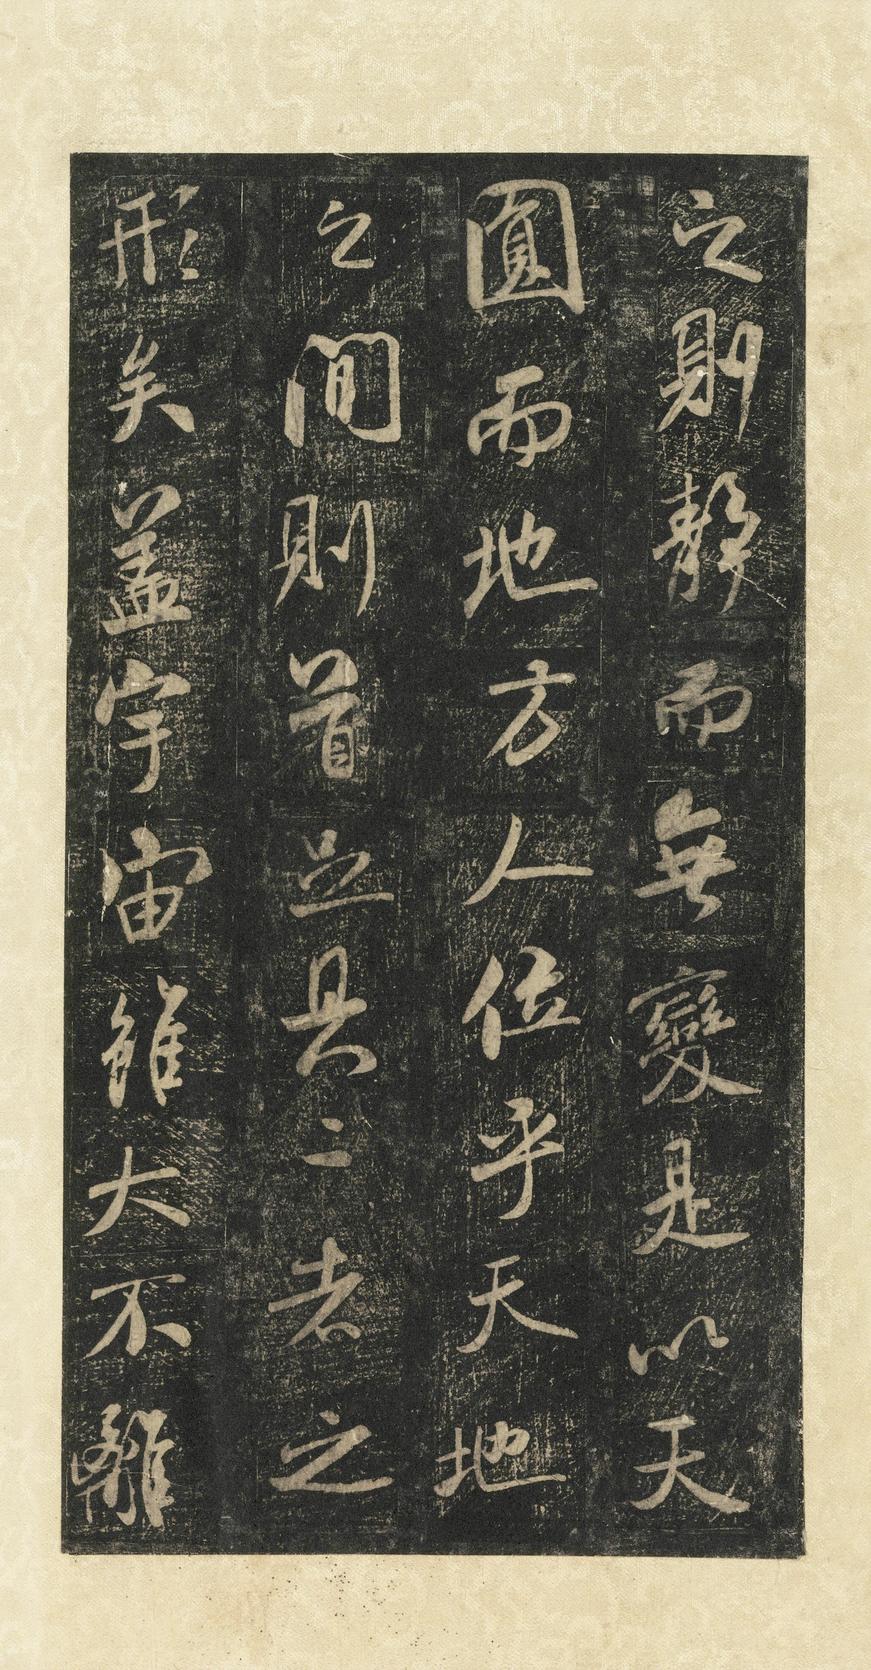 之則靜而無變是以天
圓而地方人位乎天地
之間則首並具二者之
形矣蓋宇宙雖大不離